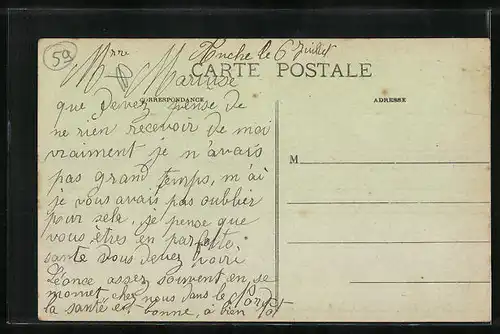 50
Anché le 6 Juillet
Mme Marcuse
CARTE POSTALE
CORRESPONDANCE
ADRESSE
M
que devez pense de
ne rien recevoir de moi
vraiment je n'avais
pas grand temps, m'ai
je vous avais pas oublier
pour sela, je pense que
vous êtres en parfaite
santé vous devez voire
Léonce assez souvent en se
moment chez nous dans le
la santé est bonne, à bien tot